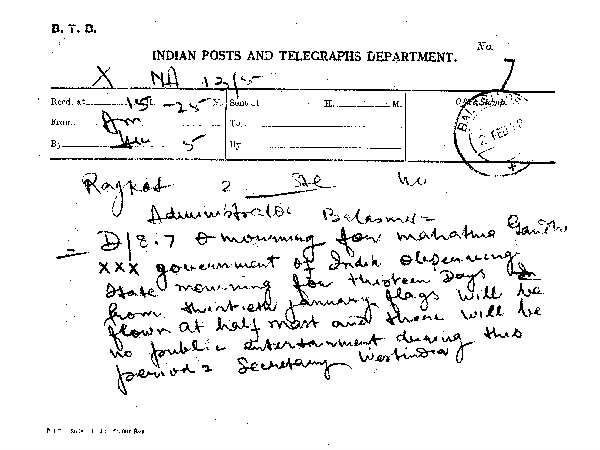 B. T. B.
INDIAN POSTS AND TELEGRAPHS DEPARTMENT.
No. 7
X NA 12/5
Recd. at 15 -25 M. Sent at H. M. Office Stamp.
From To
By 5 By
2 FEB
Rajkot 2 Ste
Administrator Balasinor =
= D/8.7 mourning for mahatma Gandhi
xxx government of India observing
State mourning for thirteen Days
from thirtieth january flags will be
flown at half mast and there will be
no public entertainment during this
period = Secretary Westindia